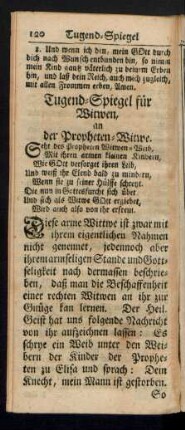 120 Tugend-Spiegel
2. Und wenn ich bin, mein GOtt durch
dich nach Wunsch entbunden bin, so nimm
mein Kind gantz väterlich zu deinem Erben
hin, und laß dein Reich, auch mich zugleich,
mit allen Frommen erben, Amen.
Tugend-Spiegel für
Witwen,
an
der Propheten-Witwe.
Seht des Propheten Witwen-Weib,
Mit ihren armen kleinen Kindern,
Wie GOtt versorget ihren Leib,
Und weiß ihr Elend bald zu mindern,
Wenn sie zu seiner Hülffe schreyt.
Die nun in Gottesfurcht sich übt
Und sich als Witwe GOtt ergiebet,
Wird auch also von ihr erfreut.
Diese arme Wittwe ist zwar mit
ihrem eigentlichen Nahmen
nicht genennet, jedennoch aber
ihrem armseligen Stande und Gott-
seligkeit nach dermassen beschrie-
ben, daß man die Beschaffenheit
einer rechten Witwen an ihr zur
Gnüge kan lernen. Der Heil.
Geist hat uns folgende Nachricht
von ihr aufzeichnen lassen: Es
schrye ein Weib unter den Wei-
bern der Kinder der Prophe-
ten zu Elisa und sprach: Dein
Knecht, mein Mann ist gestorben.
So